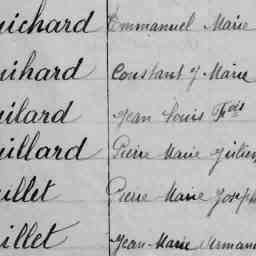 uichard Emmanuel Marie
uihard Constant J. Marie
uilard Jean Louis Fçois
uillard Pierre Marie Julien
uillet Pierre Marie Joseph
illet Jean-Marie Armand